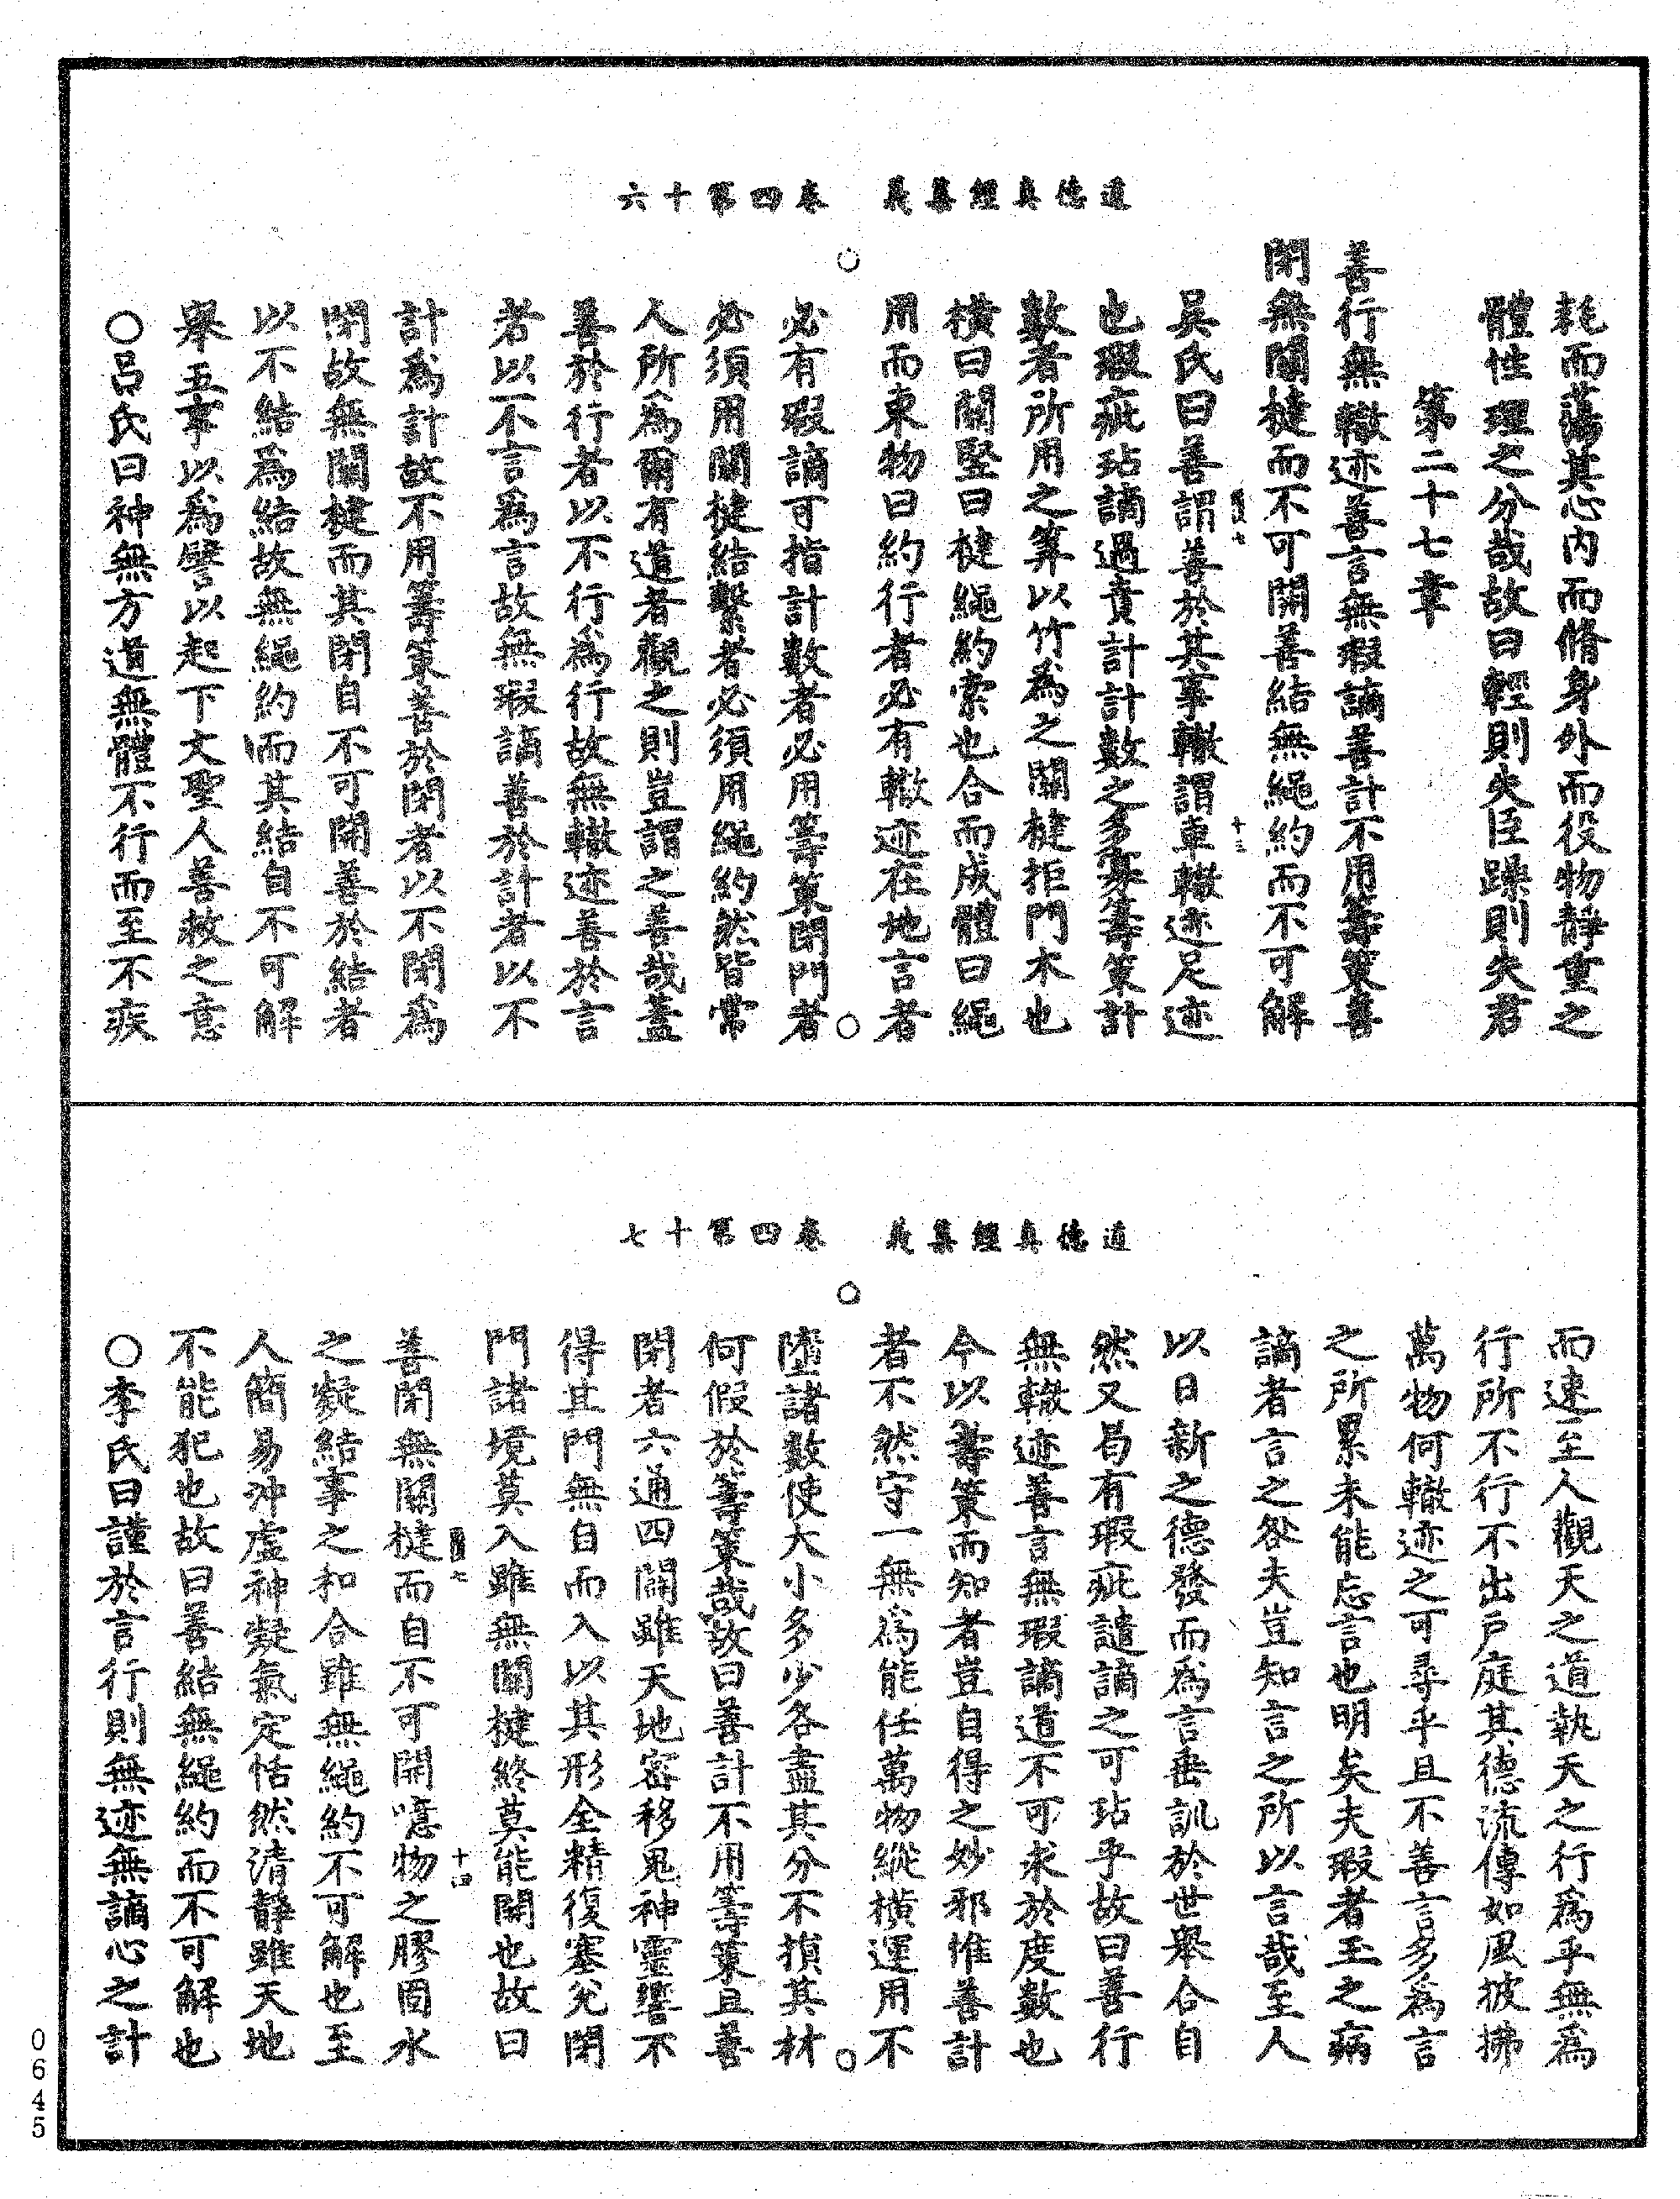 道德真經集義　卷四第十六
耗而蕩其心內而脩身外而役物靜重之
體性理之分哉故曰輕則失臣躁則失君
第二十七章
善行無轍迹善言無瑕謫善計不用籌策善
閉無關楗而不可開善結無繩約而不可解
吳氏曰善謂善於其事轍謂車轍迹足迹
也瑕疵玷謫過責計計數之多寡籌策計
數者所用之筭以竹為之關楗拒門木也
橫曰關堅曰楗繩約索也合而成體曰繩
用而束物曰約行者必有轍迹在地言者
必有瑕謫可指計數者必用籌策閉門者
必須用關楗結繫者必須用繩約然皆常
人所為爾有道者觀之則豈謂之善哉蓋
善於行者以不行為行故無轍迹善於言
者以不言為言故無瑕謫善於計者以不
計為計故不用籌策善於閉者以不閉為
閉故無關楗而其閉自不可開善於結者
以不結為結故無繩約而其結自不可解
舉五事以為譬以起下文聖人善救之意
○呂氏曰神無方道無體不行而至不疾
十三
道德真經集義　卷四第十七
而速至人觀天之道執天之行為乎無為
行所不行不出戶庭其德流傳如風披拂
萬物何轍迹之可尋乎且不善言多為言
之所累未能忘言也明矣夫瑕者玉之病
謫者言之咎夫豈知言之所以言哉至人
以日新之德發而為言垂訓於世舉合自
然又曷有瑕疵譴謫之可玷乎故曰善行
無轍迹善言無瑕謫道不可求於度數也
今以籌策而知者豈自得之妙邪惟善計
者不然守一無為能任萬物縱橫運用不
墮諸數使大小多少各盡其分不損其材
何假於籌策哉故曰善計不用籌策且善
閉者六通四闢雖天地密移鬼神靈響不
得其門無自而入以其形全精復塞兌閉
門諸境莫入雖無關楗終莫能開也故曰
善閉無關楗而自不可開噫物之膠固水
之凝結事之和合雖無繩約不可解也至
人簡易沖虛神凝氣定恬然清靜雖天地
不能犯也故曰善結無繩約而不可解也
○李氏曰謹於言行則無迹無謫心之計
十四
0645